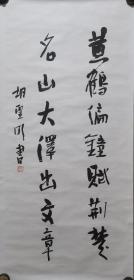 黄鹤编钟赋荆楚
名山大泽出文章
胡圣刚书